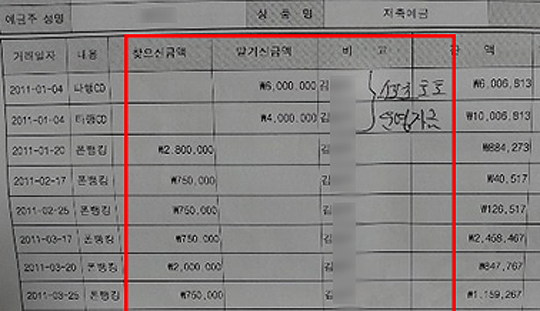 예금주 성명 상 품 명 저축예금
거래일자 내용 찾으신금액 맡기신금액 비 고 잔 액
2011-01-04 타행CD ₩6,000,000 김 ₩6,006,813
2011-01-04 타행CD ₩4,000,000 김 ₩10,006,813
2011-01-20 폰뱅킹 ₩2,800,000 김 ₩884,273
2011-02-17 폰뱅킹 ₩750,000 김 ₩40,517
2011-02-25 폰뱅킹 ₩750,000 김 ₩126,517
2011-03-17 폰뱅킹 ₩750,000 김 ₩2,458,467
2011-03-20 폰뱅킹 ₩2,000,000 김 ₩847,767
2011-03-25 폰뱅킹 ₩750,000 김 ₩1,159,267